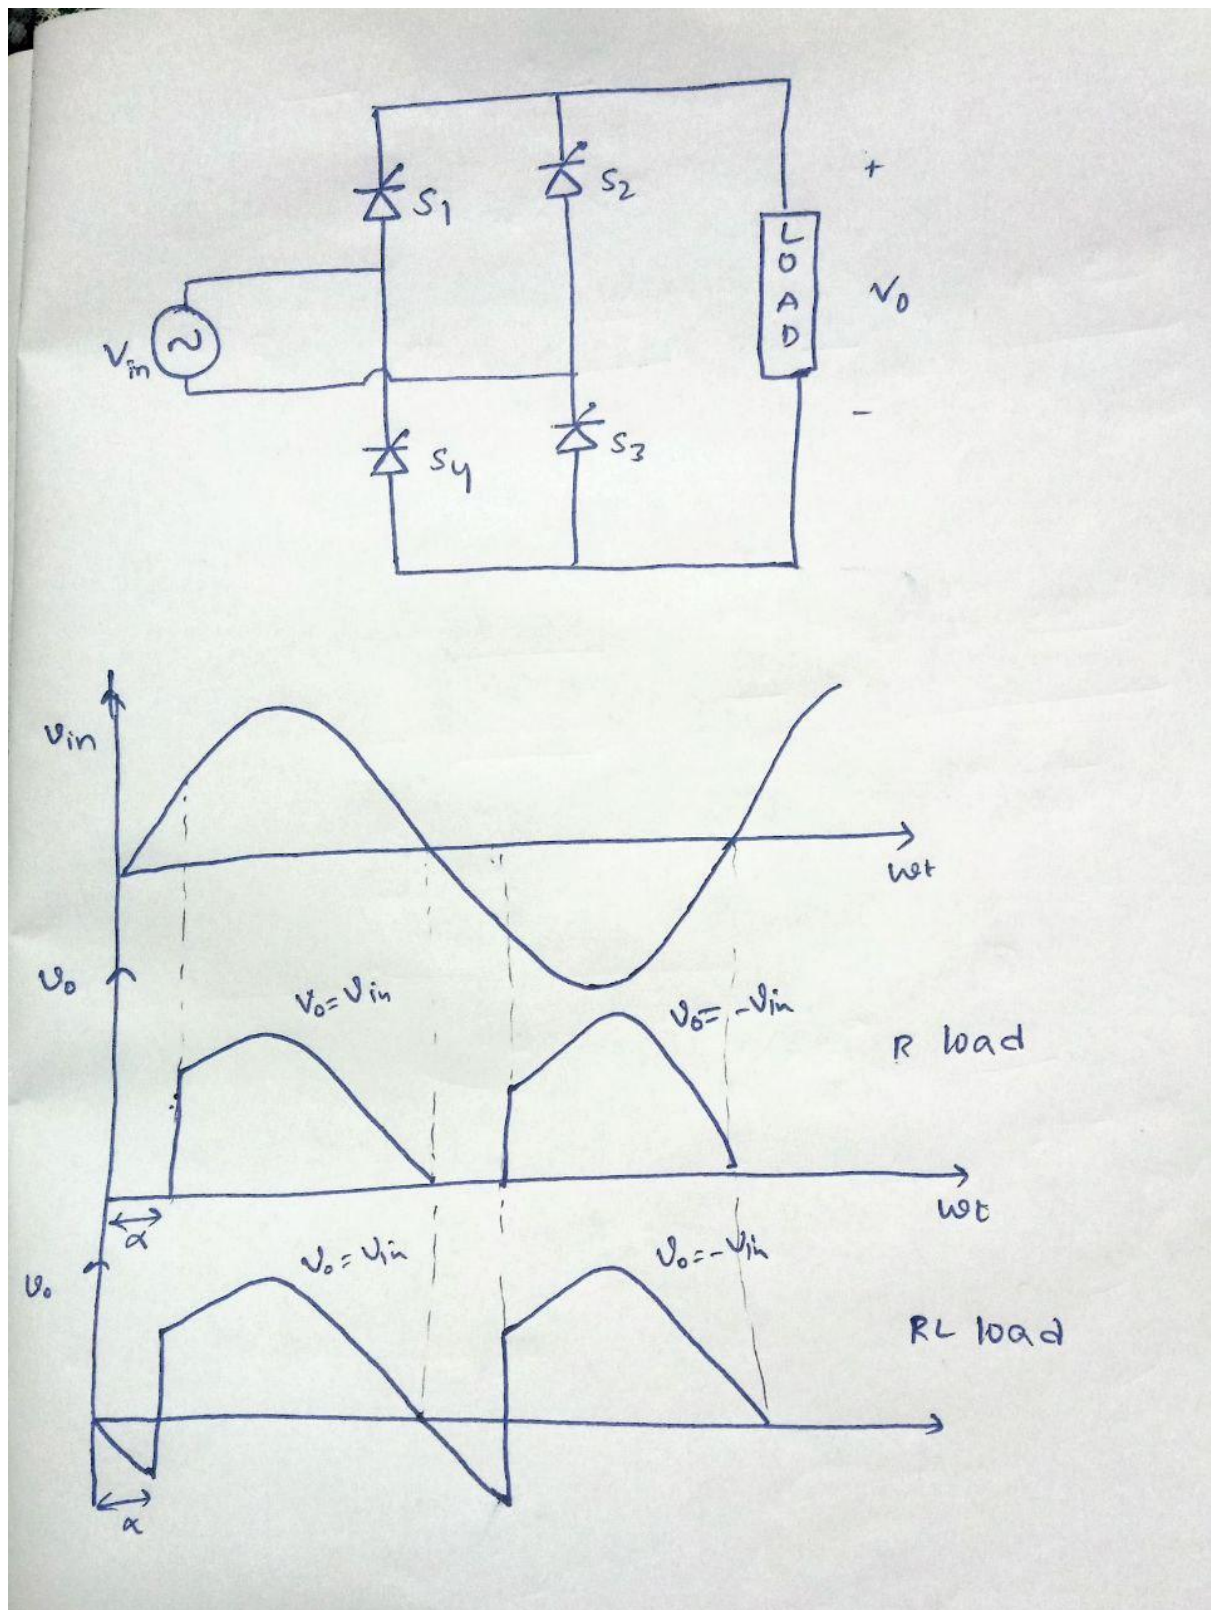 S1
S2
+
L
O
A
D
V0
Vin
-
S3
S4
vin
wt
v0
V0=Vin
V0=-Vin
R load
wt
α
v0=vin
v0=-vin
v0
RL load
α